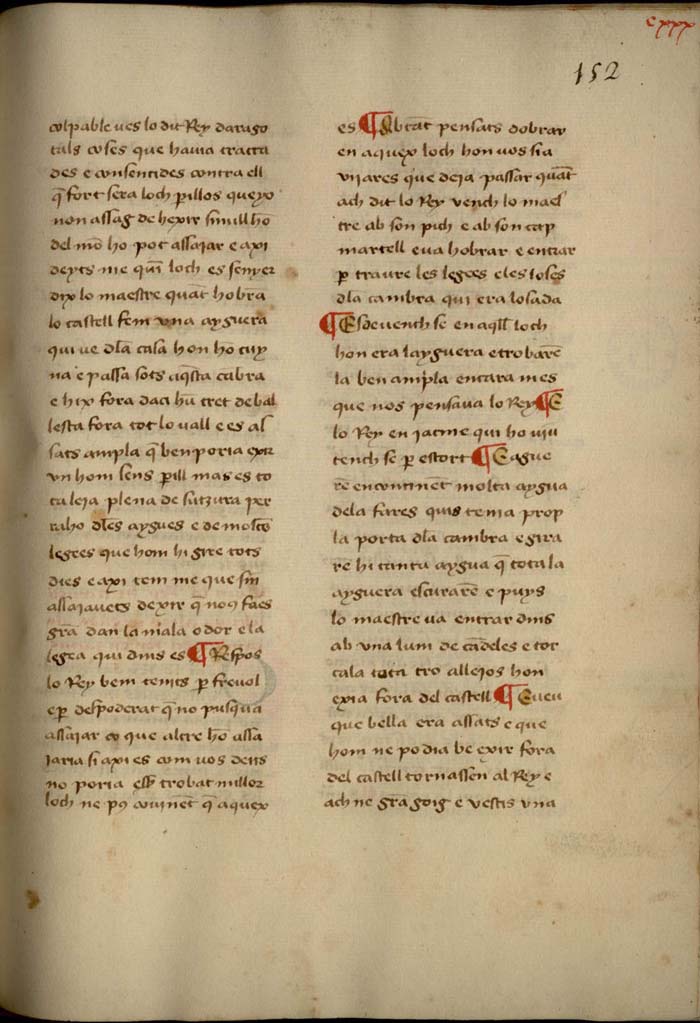 cxxx
152
colpable ves lo dit Rey darago
tals coses que hauia tracta
des e consentides contra ell
q̄ fort sera loch perillos que yo
non assag de hexir si null hō
del mō ho pot assaiar e axi
deyts me quī loch es senyer
dix lo maestre quāt hobra
lo castell fem vna ayguera
qui ve dla casa hon hō cuy
na e passa sots aq̄sta cābra
e hix fora daci hū tret de bal
lesta fora tot lo vall e es as
sats ampla q̄ ben poria exir
vn hom sens perill mas es to
ta leia plena de sutzura per
raho dles aygues e de moltes
legees que hom hi gite tots
dies e axi tem me que sin
assaiauets dexir q̄ nous faes
grā dan la mala odor e la
legea qui dins es ¶ Respos
lo Rey bem tenits per freuol
e per despoderat q̄ no pusqua
assaiar ço que altre hō assa
iaria si axi es com vos deits
no poria esser trobat millor
loch ne pus couinēt q̄ aquex
es ¶ Ab tāt pensats dobrar
en aquex loch hon vos sia
viiares que deia passar quāt
ach dit lo Rey vench lo maes
tre ab son pich e ab son cap
martell e va hobrar e entrar
per traure les legees e les loses
dla cambra qui era losada
¶ Esdeuench se en aq̄ll loch
hon era layguera e trobarē
la ben ampla encara mes
que nos pensaua lo Rey ¶ E
lo Rey en iacme qui ho viu
tench se per estort ¶ E ague
rē encontinēt molta aygua
dela fares quis tenia prop
la porta dla cambra e gira
rē hi tanta aygua q̄ tota la
ayguera escurarē e puys
lo maestre va entrar dins
ab vna lum de cādeles e cer
cala tota tro alleios hon
exia fora del castell ¶ E veu
que bella era assats e que
hom ne podia be exir fora
del castell tornassen al Rey e
ach ne grā goig e vestis vna